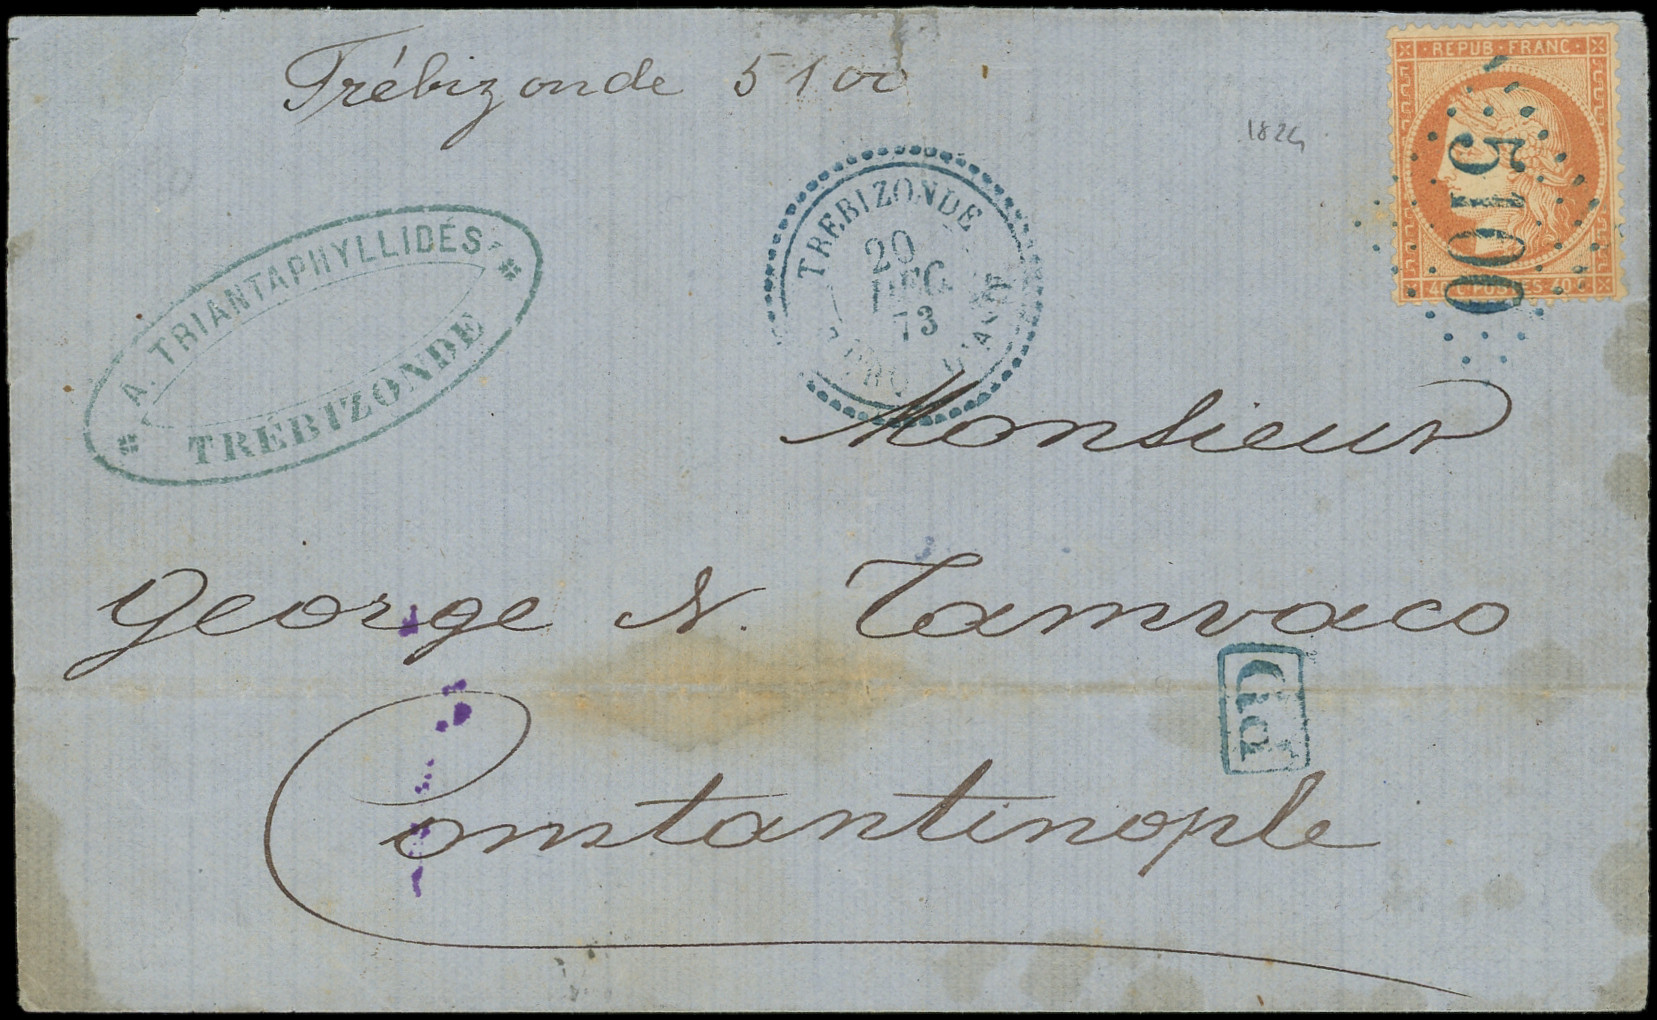 Trébizonde 5100
REPUB·FRANC·
5100
40 C POSTES 40 C
1824
TREBIZONDE
20
DEC.
73
A. TRIANTAPHYLLIDÉS
TRÉBIZONDE
Monsieur
George N. Tamvaco
PD
Constantinople